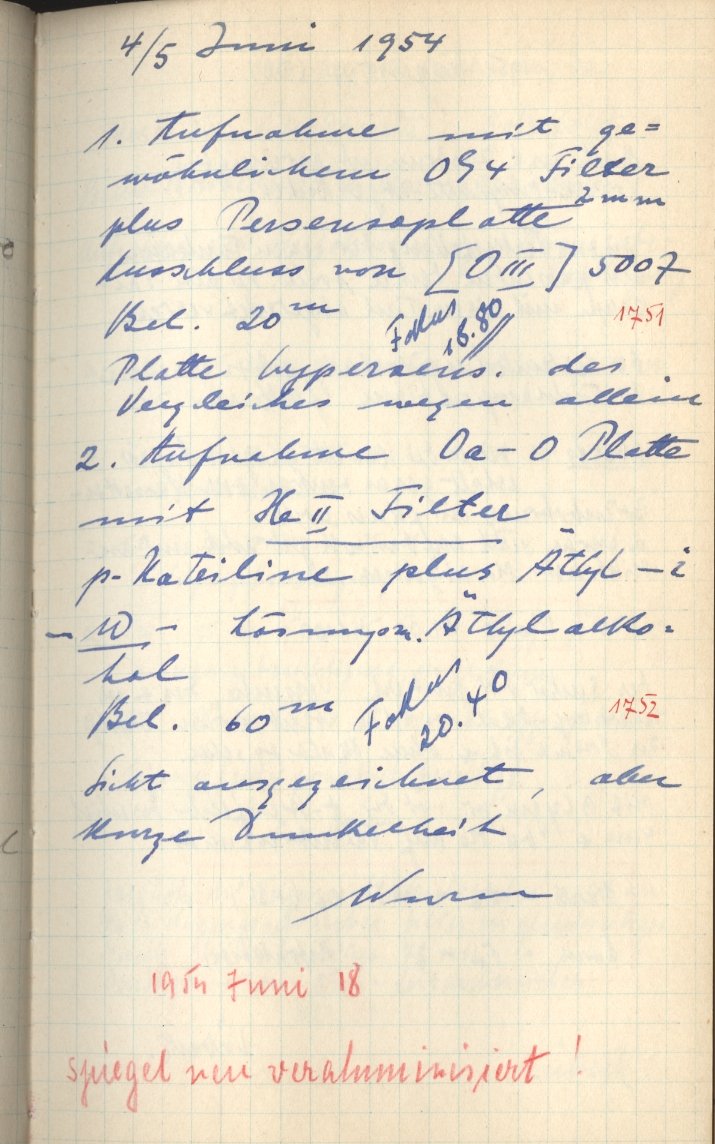 4/5 Juni 1954
1. Aufnahme mit ge=
wöhnlichem OG4 Filter
plus Persensoplatte 2mm
Ausschluss von [O III] 5007
Bel. 20m Fokus 18.80 1751
Platte hypersens. des
Vergleiches wegen allein
2. Aufnahme Oa-O Platte
mit He II Filter
plus Äthyl-i
-10- Äthylalko-
hol
Bel. 60m Fokus 20.40 1752
Sicht ausgezeichnet, aber
kurze Dunkelheit
Wurm
1954 Juni 18
spiegel neu veraluminisiert!